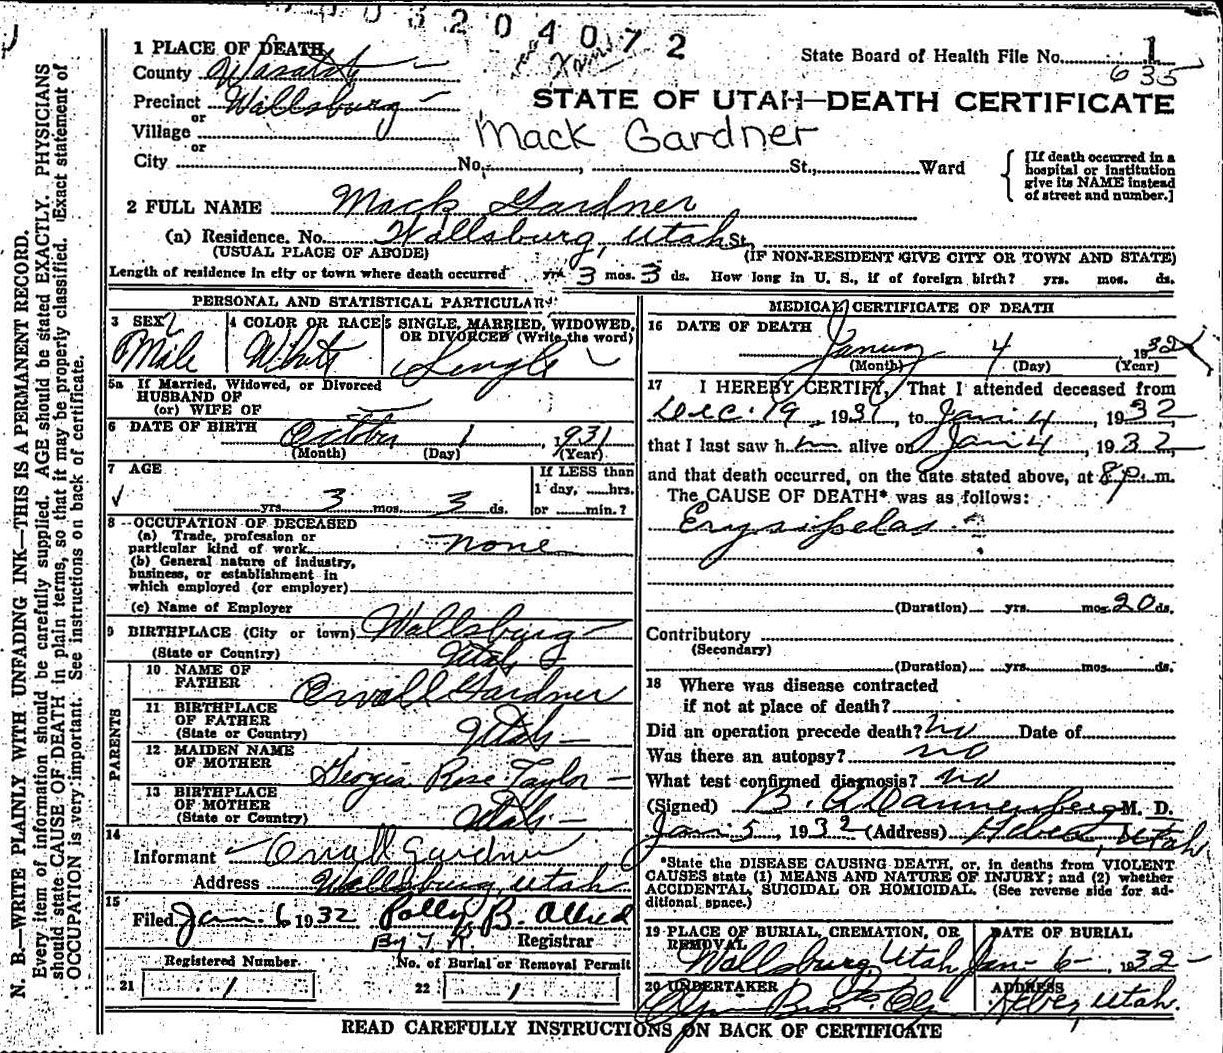 0 3 2 0 4 0 7 2
State Board of Health File No. 1
635
1 PLACE OF DEATH
County Wasatch
Precinct Wallsburg
or
Village
or
City No., , St., Ward
STATE OF UTAH—DEATH CERTIFICATE
Mack Gardner
[If death occurred in a
hospital or institution
give its NAME instead
of street and number.]
2 FULL NAME Mack Gardner
(a) Residence. No. Wallsburg, Utah St,
(USUAL PLACE OF ABODE) (IF NON-RESIDENT GIVE CITY OR TOWN AND STATE)
Length of residence in city or town where death occurred yrs. 3 mos. 3 ds. How long in U. S., if of foreign birth? yrs. mos. ds.
PERSONAL AND STATISTICAL PARTICULARS
3 SEX
Male
4 COLOR OR RACE
White
5 SINGLE, MARRIED, WIDOWED,
OR DIVORCED (Write the word)
Single
5a If Married, Widowed, or Divorced
HUSBAND OF
(or) WIFE OF
6 DATE OF BIRTH October 1, 1931
(Month) (Day) (Year)
7 AGE
yrs. 3 mos. 3 ds.
If LESS than
1 day, ......hrs.
or ......min.?
8 OCCUPATION OF DECEASED
(a) Trade, profession or
particular kind of work none
(b) General nature of industry,
business, or establishment in
which employed (or employer)
(c) Name of Employer
9 BIRTHPLACE (City or town) Wallsburg
(State or Country) Utah
PARENTS
10 NAME OF
FATHER Orvall Gardner
11 BIRTHPLACE
OF FATHER
(State or Country) Utah
12 MAIDEN NAME
OF MOTHER Georgia Rose Taylor
13 BIRTHPLACE
OF MOTHER
(State or Country) Utah
14
Informant Orvall Gardner
Address Wallsburg, Utah
15
Filed Jan. 6 1932 Polly B. Allred
By T. R. Registrar
Registered Number.
21 1
No. of Burial or Removal Permit
22 1
MEDICAL CERTIFICATE OF DEATH
16 DATE OF DEATH
January 4, 1932
(Month) (Day) (Year)
17 I HEREBY CERTIFY, That I attended deceased from
Dec. 19, 1931, to Jan. 4, 1932
that I last saw him alive on Jan 4, 1932,
and that death occurred, on the date stated above, at 8 p. m.
The CAUSE OF DEATH* was as follows:
Erysipelas
(Duration) yrs. mos. 20 ds.
Contributory
(Secondary)
(Duration) yrs. mos. ds.
18 Where was disease contracted
if not at place of death?
Did an operation precede death? no Date of
Was there an autopsy? no
What test confirmed diagnosis? no
(Signed) B. A. Dannenberg M. D.
Jan 5, 1932 (Address) Heber, Utah
*State the DISEASE CAUSING DEATH, or, in deaths from VIOLENT
CAUSES state (1) MEANS AND NATURE OF INJURY; and (2) whether
ACCIDENTAL, SUICIDAL OR HOMICIDAL. (See reverse side for ad-
ditional space.)
19 PLACE OF BURIAL, CREMATION, OR
REMOVAL
Wallsburg, Utah
DATE OF BURIAL
Jan- 6-, 1932-
20 UNDERTAKER
Bros.
ADDRESS
Heber, Utah.
READ CAREFULLY INSTRUCTIONS ON BACK OF CERTIFICATE
N. B.—WRITE PLAINLY WITH UNFADING INK—THIS IS A PERMANENT RECORD.
Every item of information should be carefully supplied. AGE should be stated EXACTLY. PHYSICIANS
should state CAUSE OF DEATH in plain terms, so that it may be properly classified. Exact statement of
OCCUPATION is very important. See instructions on back of certificate.